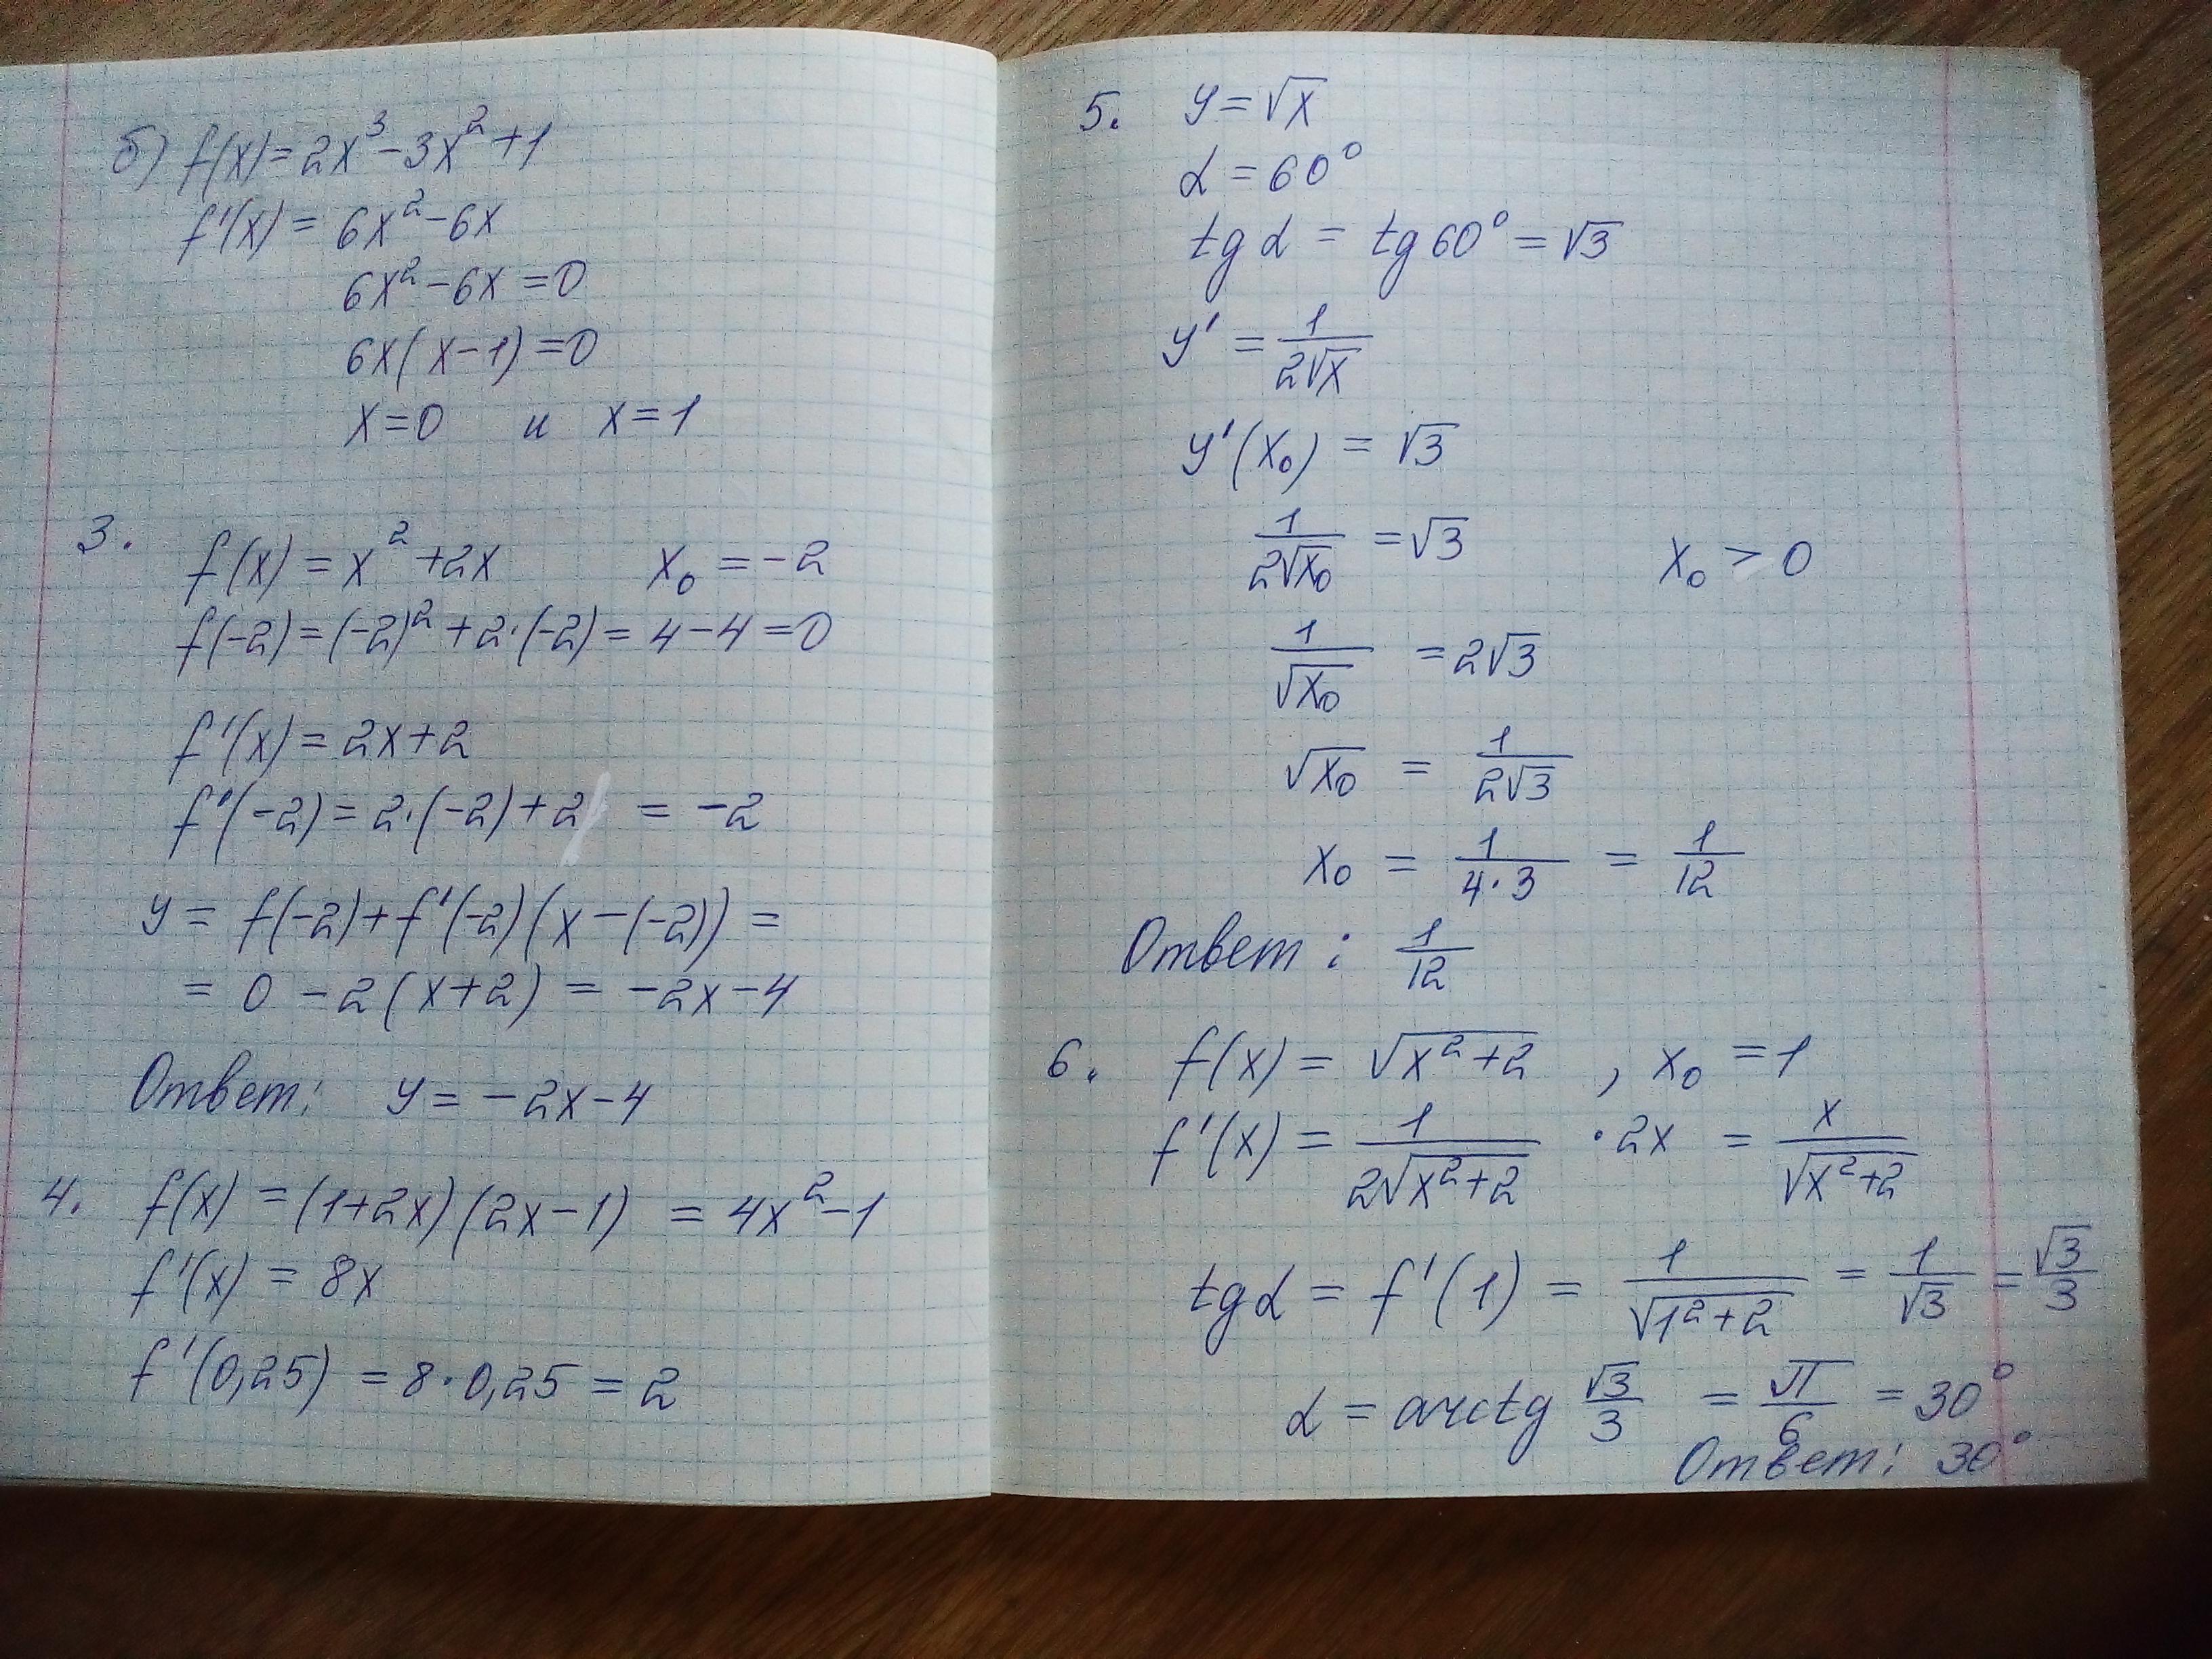 б) f(x)=2x³-3x²+1
f'(x)= 6x²-6x
6x²-6x=0
6x(x-1)=0
x=0 и x=1
3. f(x)=x²+2x x₀=-2
f(-2)=(-2)²+2·(-2)=4-4=0
f'(x)=2x+2
f'(-2)=2·(-2)+2 = -2
y= f(-2)+f'(-2)(x-(-2))=
= 0 -2(x+2) = -2x-4
Ответ: y=-2x-4
4. f(x)=(1+2x)(2x-1) = 4x²-1
f'(x) = 8x
f'(0,25) = 8·0,25 = 2
5. y=√x
α=60°
tg α = tg 60° = √3
y' = 1/(2√x)
y'(x₀) = √3
1/(2√x₀) = √3 x₀ > 0
1/√x₀ = 2√3
√x₀ = 1/(2√3)
x₀ = 1/(4·3) = 1/12
Ответ: 1/12
6. f(x) = √(x²+2) , x₀ = 1
f'(x) = 1/(2√(x²+2)) · 2x = x/√(x²+2)
tg α = f'(1) = 1/√(1²+2) = 1/√3 = √3/3
α = arctg √3/3 = π/6 = 30°
Ответ: 30°